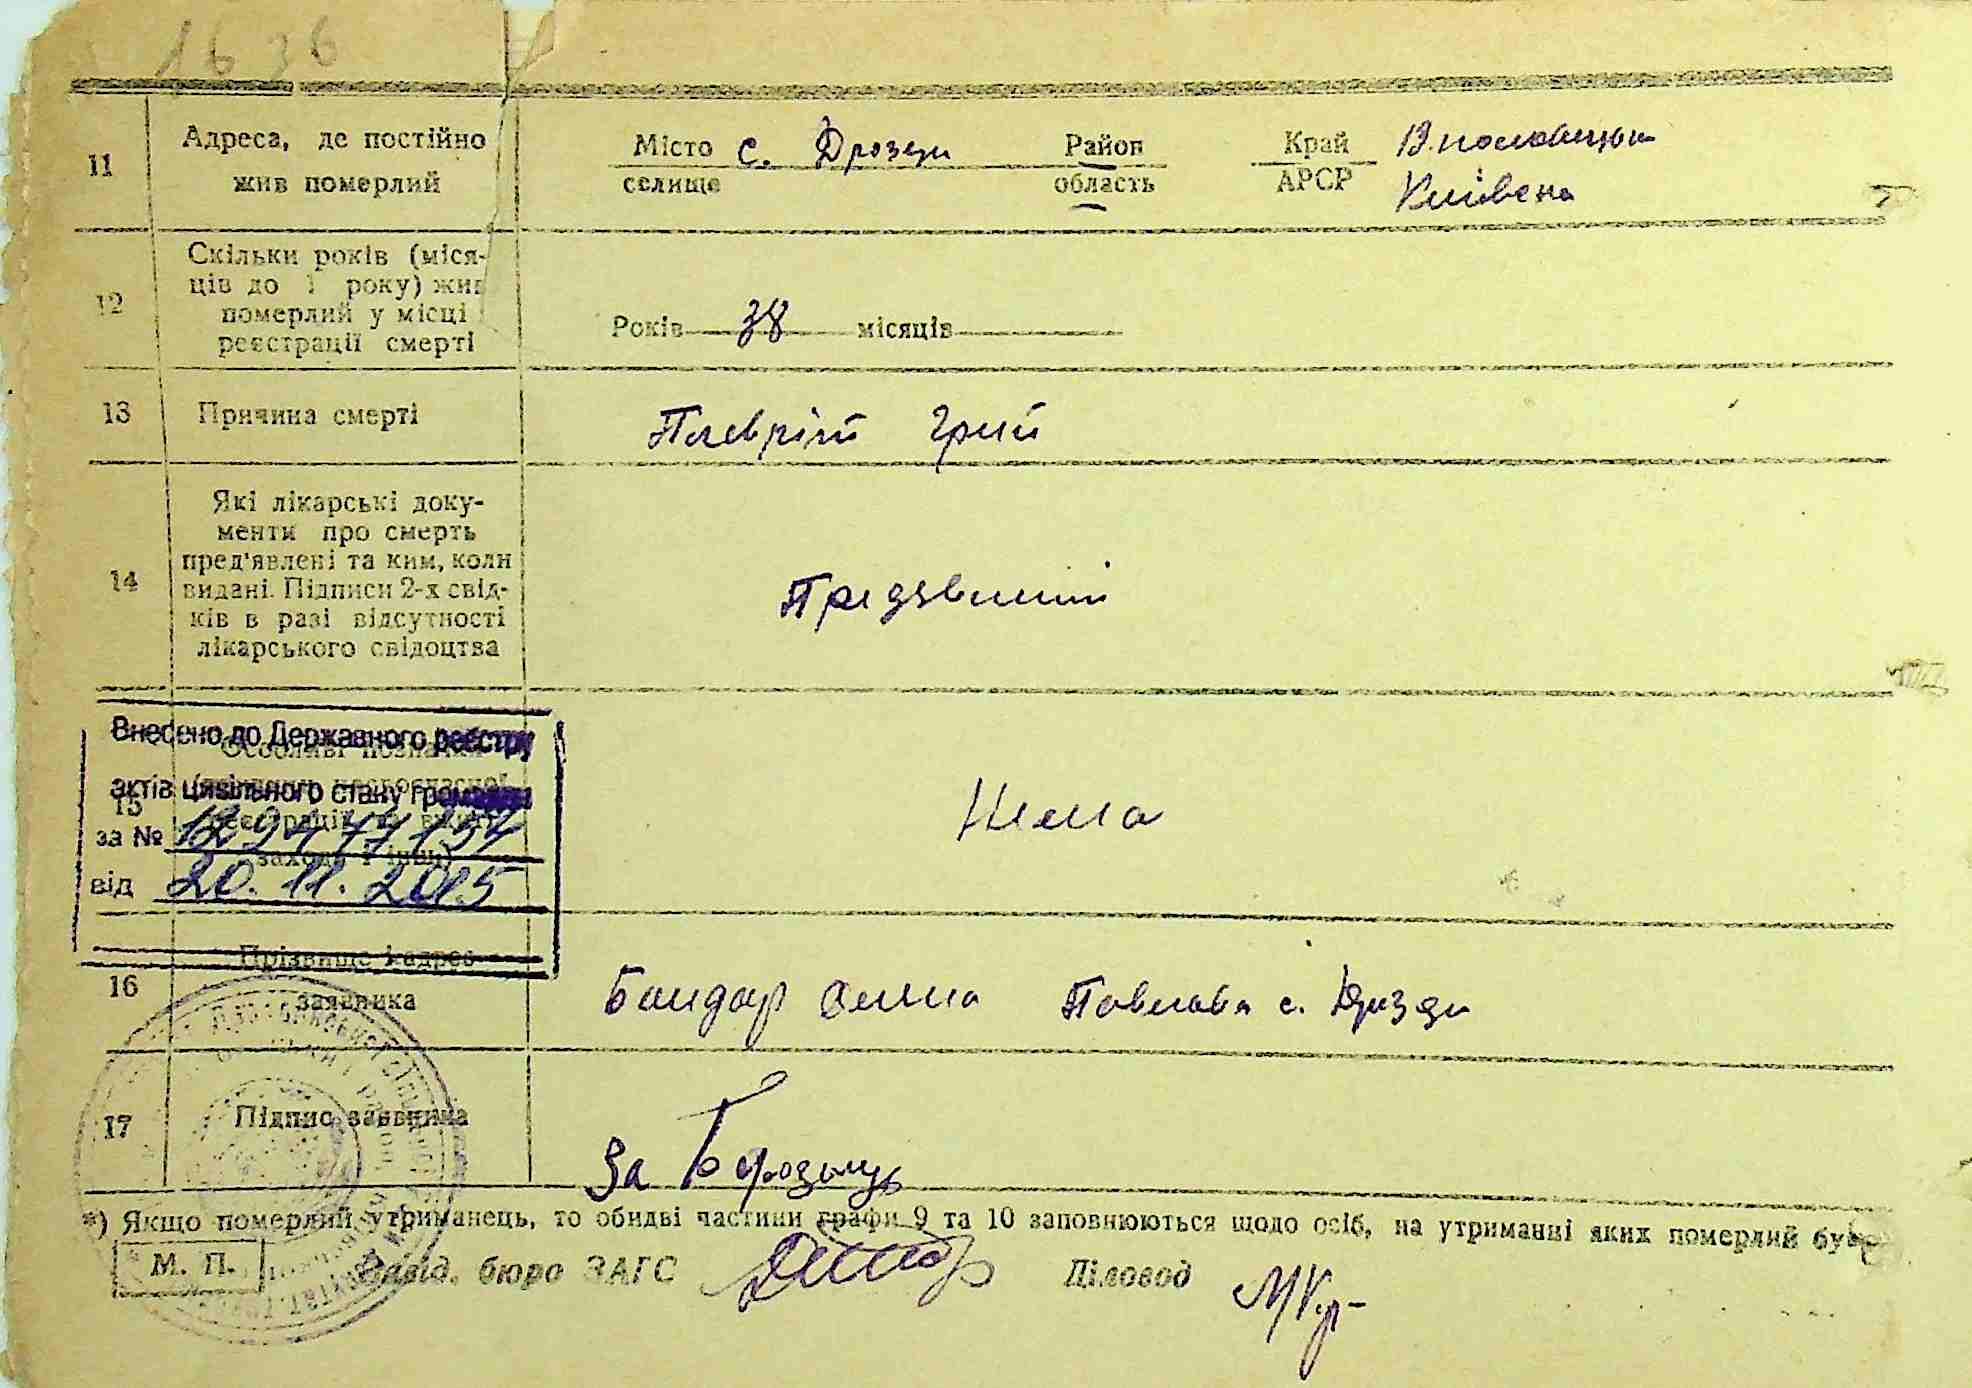 1636
11 Адреса, де постійно жив померлий
Місто селище с. Дрозди Район область Край АРСР В. половецьк Київська
12 Скільки років (міся-
ців до 1 року) жив
померлий у місці
реєстрації смерті
Років 38 місяців
13 Причина смерті Плевріт Грип
14 Які лікарські доку-
менти про смерть
пред'явлені та ким, коли
видані. Підписи 2-х свід-
ків в разі відсутності
лікарського свідоцтва
Внесено до Державного реєстру
актів цивільного стану громадян
за № 129477154
від 20.11.2015
15 Особливі
Нема
16 Прізвище і адрес
заявника
Бондар Павлова с. Дрозди
17 Підпис заявника
За
*) Якщо померлий утриманець, то обидві частини графи 9 та 10 заповнюються щодо осіб, на утриманні яких померлий був
М. П. Завід. бюро ЗАГС Діловод